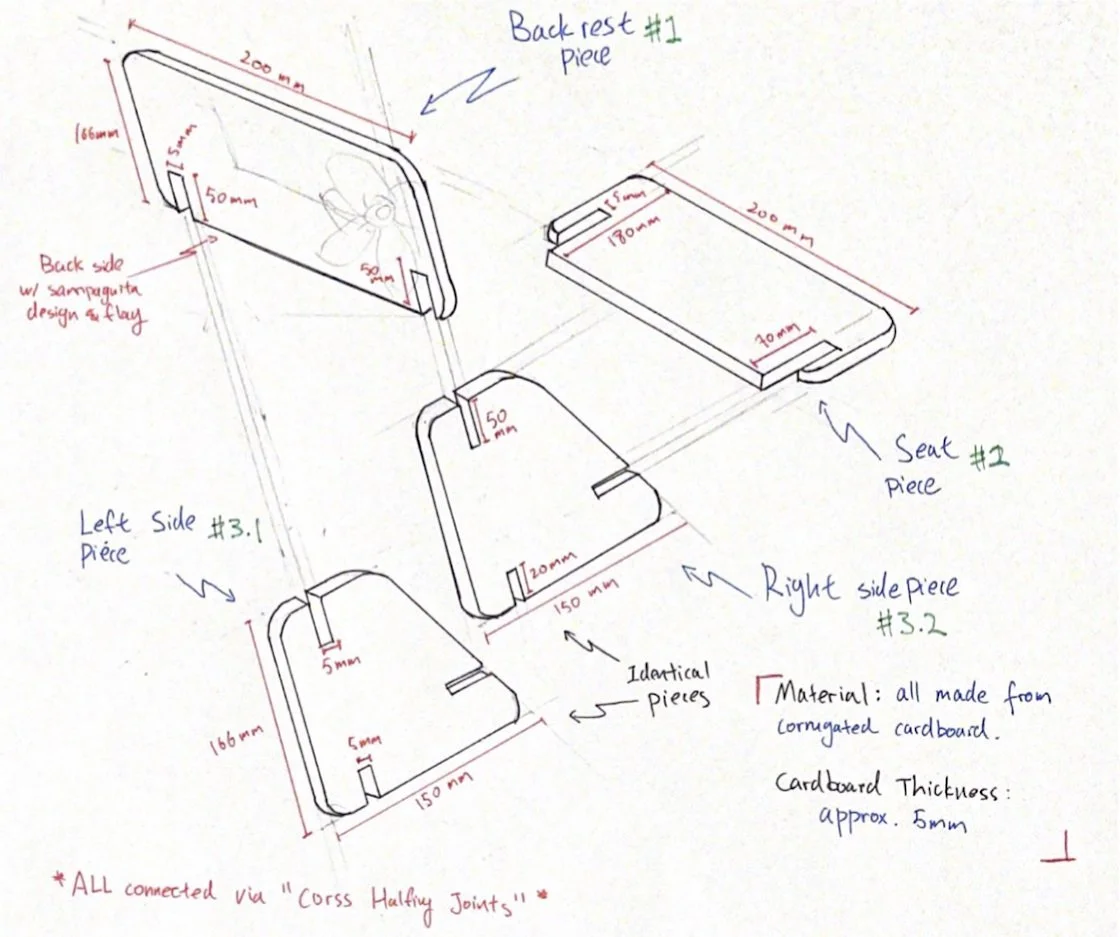 Back rest #1
piece
200 mm
166mm
5mm
50mm
50
mm
Back side
w/ sampaguita
design & flay
5mm
180mm
200 mm
70mm
Seat #2
piece
50
mm
20mm
150 mm
Left Side #3.1
piece
Right side piece
#3.2
5mm
166mm
5mm
150 mm
Identical
pieces
Material: all made from
corrugated cardboard.
Cardboard Thickness:
approx. 5mm
*ALL connected via "Corss Halfing Joints"*